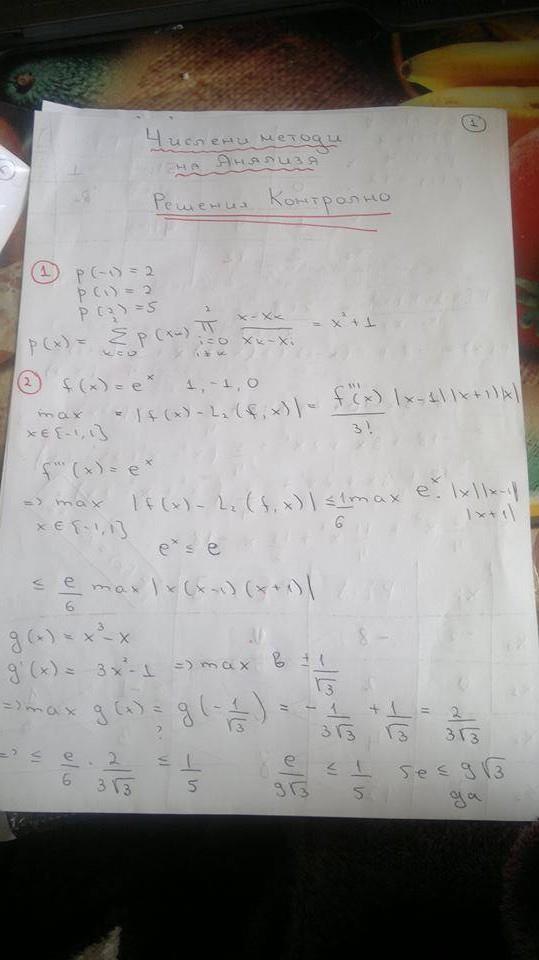 1
Числени методи
на Анализа
Решения Контролно
1 p(-1) = 2
p(1) = 2
p(2) = 5
p(x) = \sum_{k=0}^{2} p(x_k) \prod_{i=0, i≠k}^{2} \frac{x-x_k}{x_k-x_i} = x^2+1
2 f(x) = e^x 1, -1, 0
max_{x∈{-1,1}} = |f(x) - L_2(f,x)| = \frac{f'''(x)}{3!} |x-1||x+1||x|
f'''(x) = e^x
=> max_{x∈{-1,1}} |f(x) - L_2(f,x)| ≤ \frac{1}{6} max e^x . |x||x-1|
|x+1|
e^x ≤ e
≤ \frac{e}{6} max |x(x-1)(x+1)|
g(x) = x^3 - x
g'(x) = 3x^2 - 1 => max в ± \frac{1}{\sqrt{3}}
=> max g(x) = g(-\frac{1}{\sqrt{3}}) = -\frac{1}{3\sqrt{3}} + \frac{1}{\sqrt{3}} = \frac{2}{3\sqrt{3}}
?
=> ≤ \frac{e}{6} . \frac{2}{3\sqrt{3}} ≤ \frac{1}{5} \frac{e}{9\sqrt{3}} ≤ \frac{1}{5} 5e ≤ 9\sqrt{3}
да